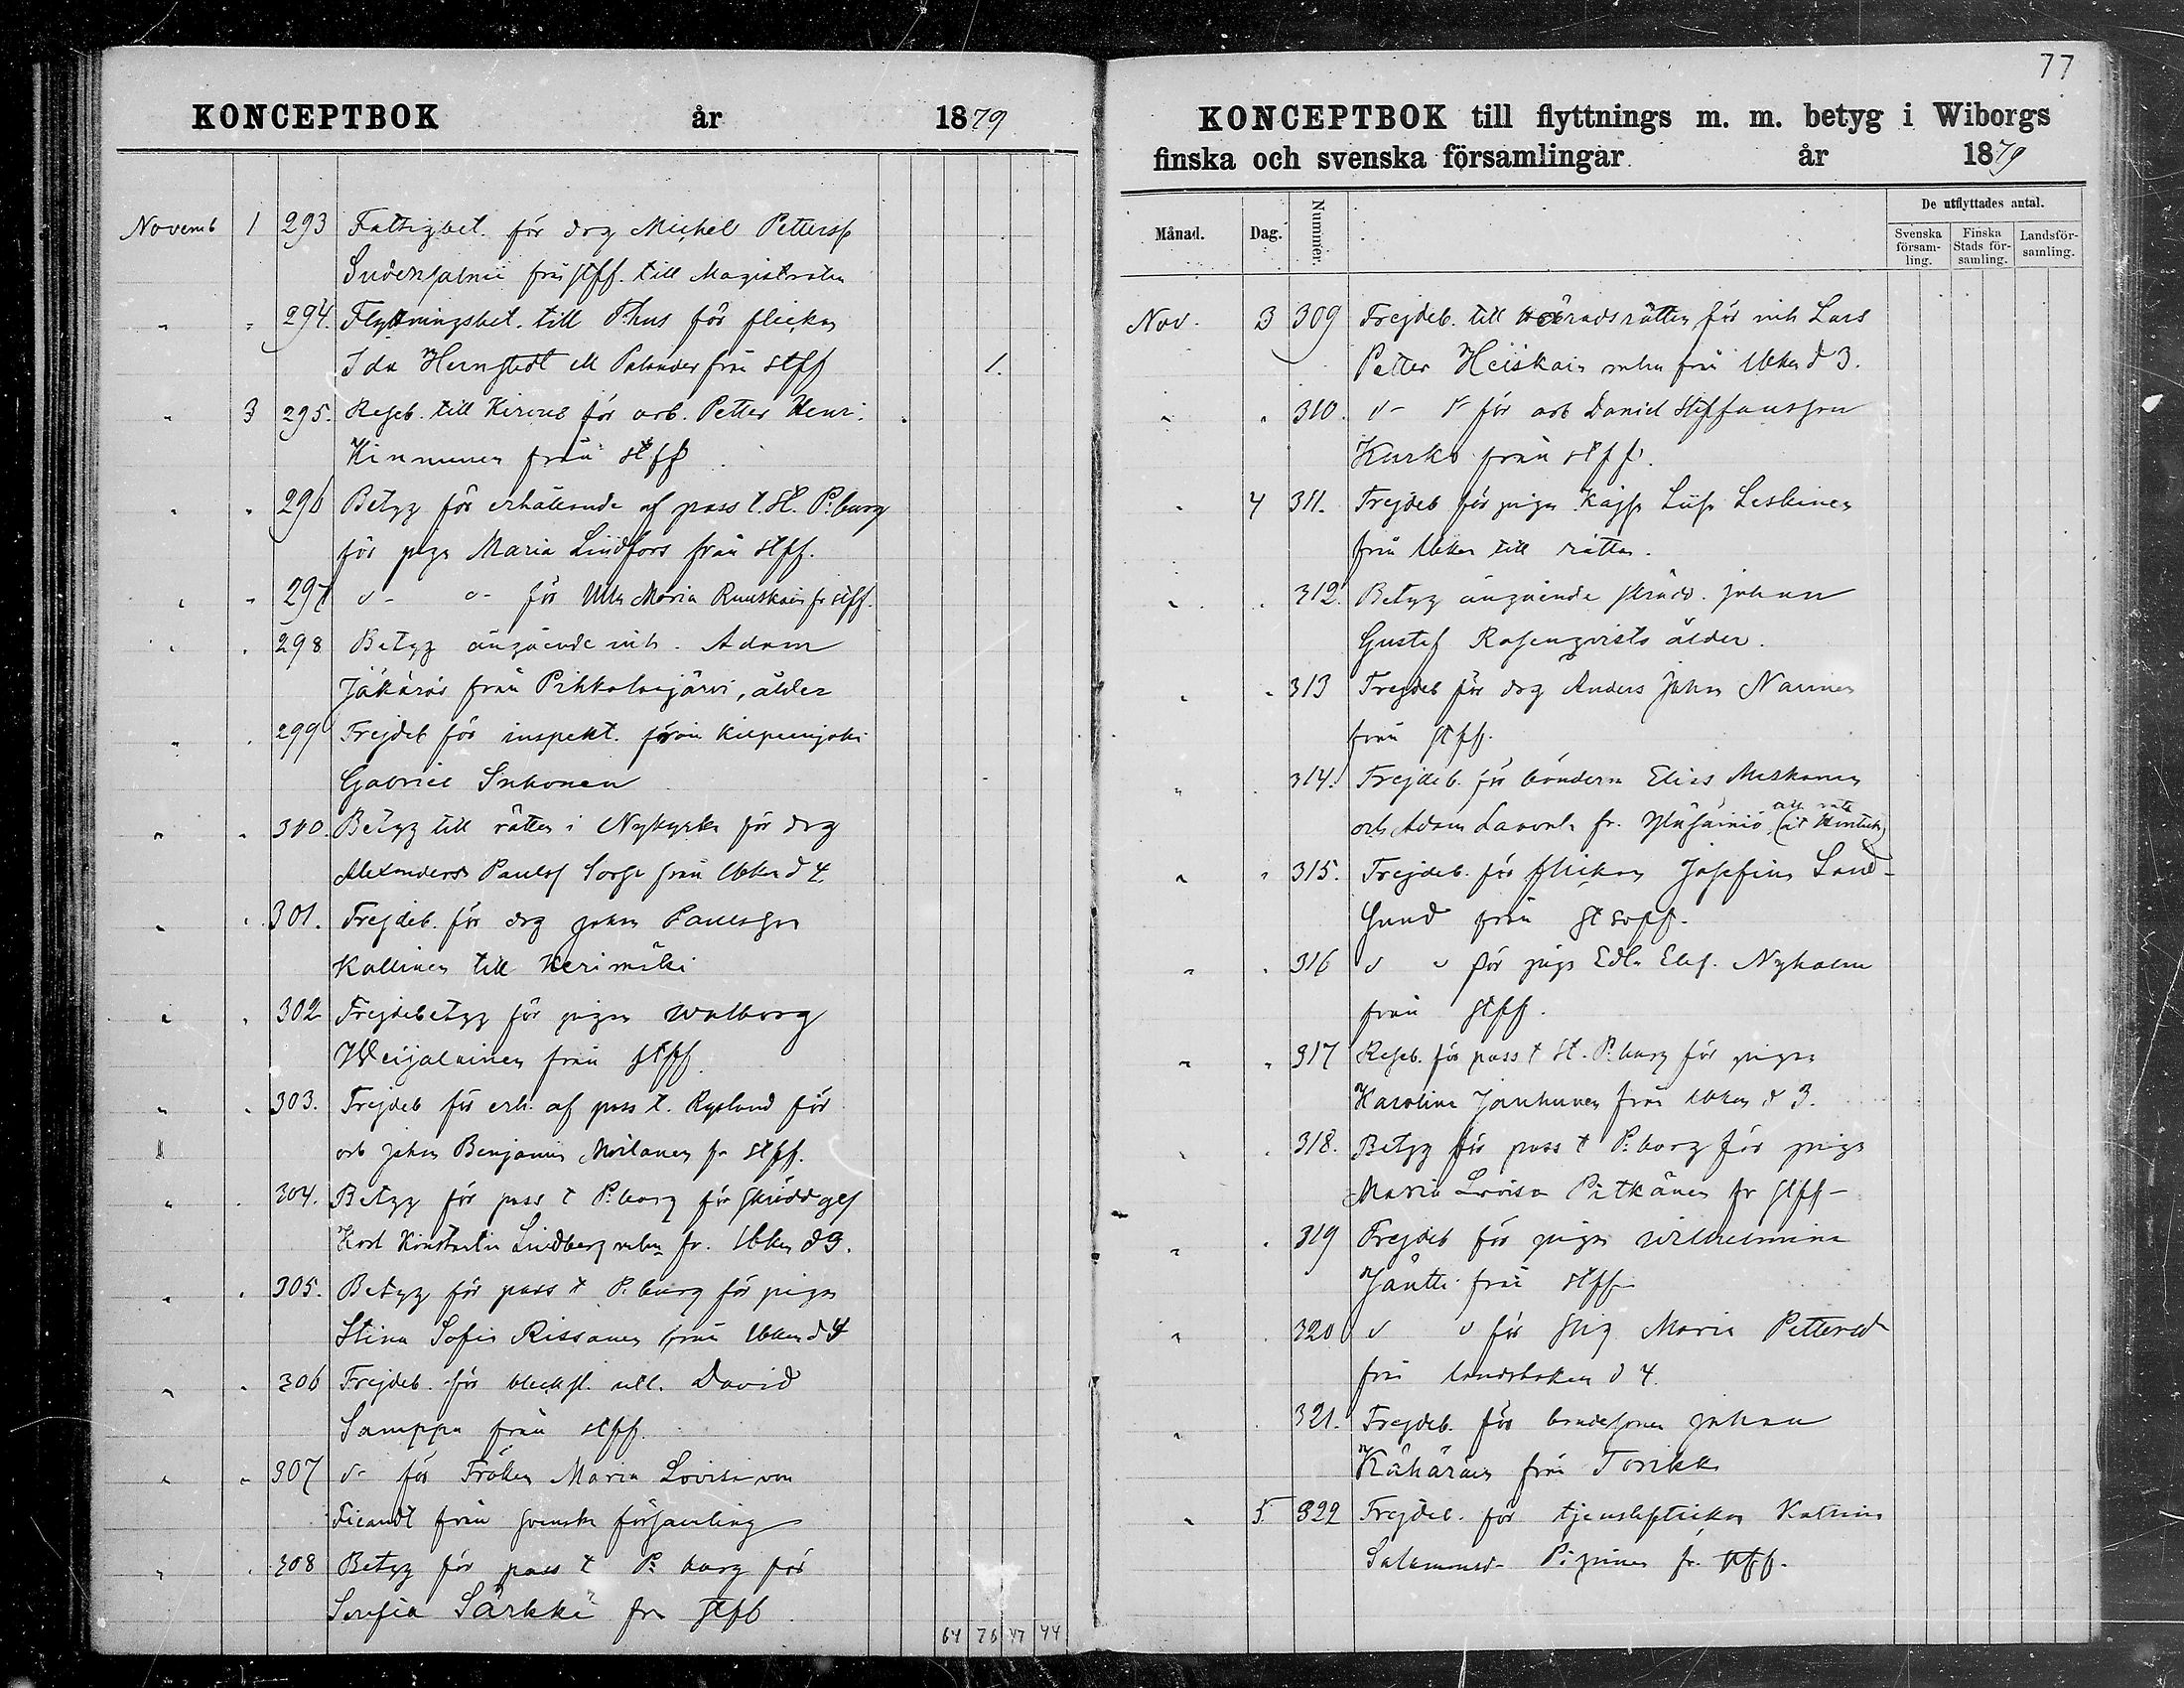 KONCEPTBOK år 1879
Novemb 1 293 Fattigbet. för drg Michel Petters
från stff. till Magistraten
" " 294. Flyttningsbet. till P:hus för flickan
Ida Hernstedt ell Palander från stff 1.
" 3 295. Reseb. till Kivens för arb. Petter Henr.
Kinnunen från stff
" " 296 Betyg för erhållande af pass t. St. P:burg
för piga Maria Lindfors från stff.
" " 297 d- o- för Ulla Maria Ruuskain fr stff.
" " 298 Betyg angående inh. Adam
Jäkärös från Pihkalanjärvi, ålder
" " 299 Frejdeb för inspekt. från Kilpeenjoki
Gabriel Inkonen
" " 300. Betyg till rätten i Nykyrka för drg
Alexander Paulsf Sorsa från lbken d 4.
" " 301. Frejdeb. för drg Johan Paulsson
Kallinen till Kerimäki
" " 302 Frejdebetyg för pigan Walborg
Weijalainen från stff
" " 303. Frejdeb för erh. af pass t. Ryssland för
" arb Johan Benjamin Moilanen fr stff.
" " 304. Betyg för pass t P:burg för skrädd ges
Karl Konstantin Lindberg fr. lbken d 3.
" " 305. Betyg för pass t P:burg för pigan
Stina Sofia Rissanen från lbken d 4
" " 306 Frejdeb. för blecksl. David
Samppa från stff.
" " 307 d- för Fröken Maria Lovisa von
Ficandt från svenska församling
" " 308 Betyg för pass t P: burg för
Serafia Särkkä fr stff
64 76 47 44
77
KONCEPTBOK till flyttnings m. m. betyg i Wiborgs
finska och svenska församlingar år 1879
Månad. Dag. Nummer. De utflyttades antal.
Svenska försam-ling. Finska Stads för-samling. Landsför-samling.
Nov. 3 309 Frejdeb. till häradsrätten för inh Lars
Petter Heiskain från lbken d 3.
" " 310. d- o- för arb Daniel Steffansson
Kurko från stff.
" 4 311. Frejdeb för pigan Kajsa Liisa Leskinen
från lbken till rätten.
" " 312. Betyg angående skrädd. Johan
Gustaf Rosenqvists ålder.
" " 313 Frejdeb för drg Anders Johan Narinen
från stff.
" " 314. Frejdeb. för bönderna Elias Meskanen
och Adam Lavonh. fr.
" " 315. Frejdeb. för flickan Josefina Sand-
lund från St soff.
" " 316 d o för piga Edla Elis. Nyholm
från stff.
" " 317 Reseb. för pass t St. P:burg för pigan
Karolina Janhunen från lbken d 3.
" " 318. Betyg för pass t P:borg för piga
Maria Lovisa Pitkänen fr stff-
" " 319 Frejdeb för pigan Wilhelmina
Jäntti från stff
" " 320 d o för Maria Pettersd
från landsboken d 4.
" " 321. Frejdeb. för bondesonen Johan
Kähärinen från Torikka
" 5. 322 Frejdeb. för tjensteflickan Katrina
Salomonsd. fr. stff.